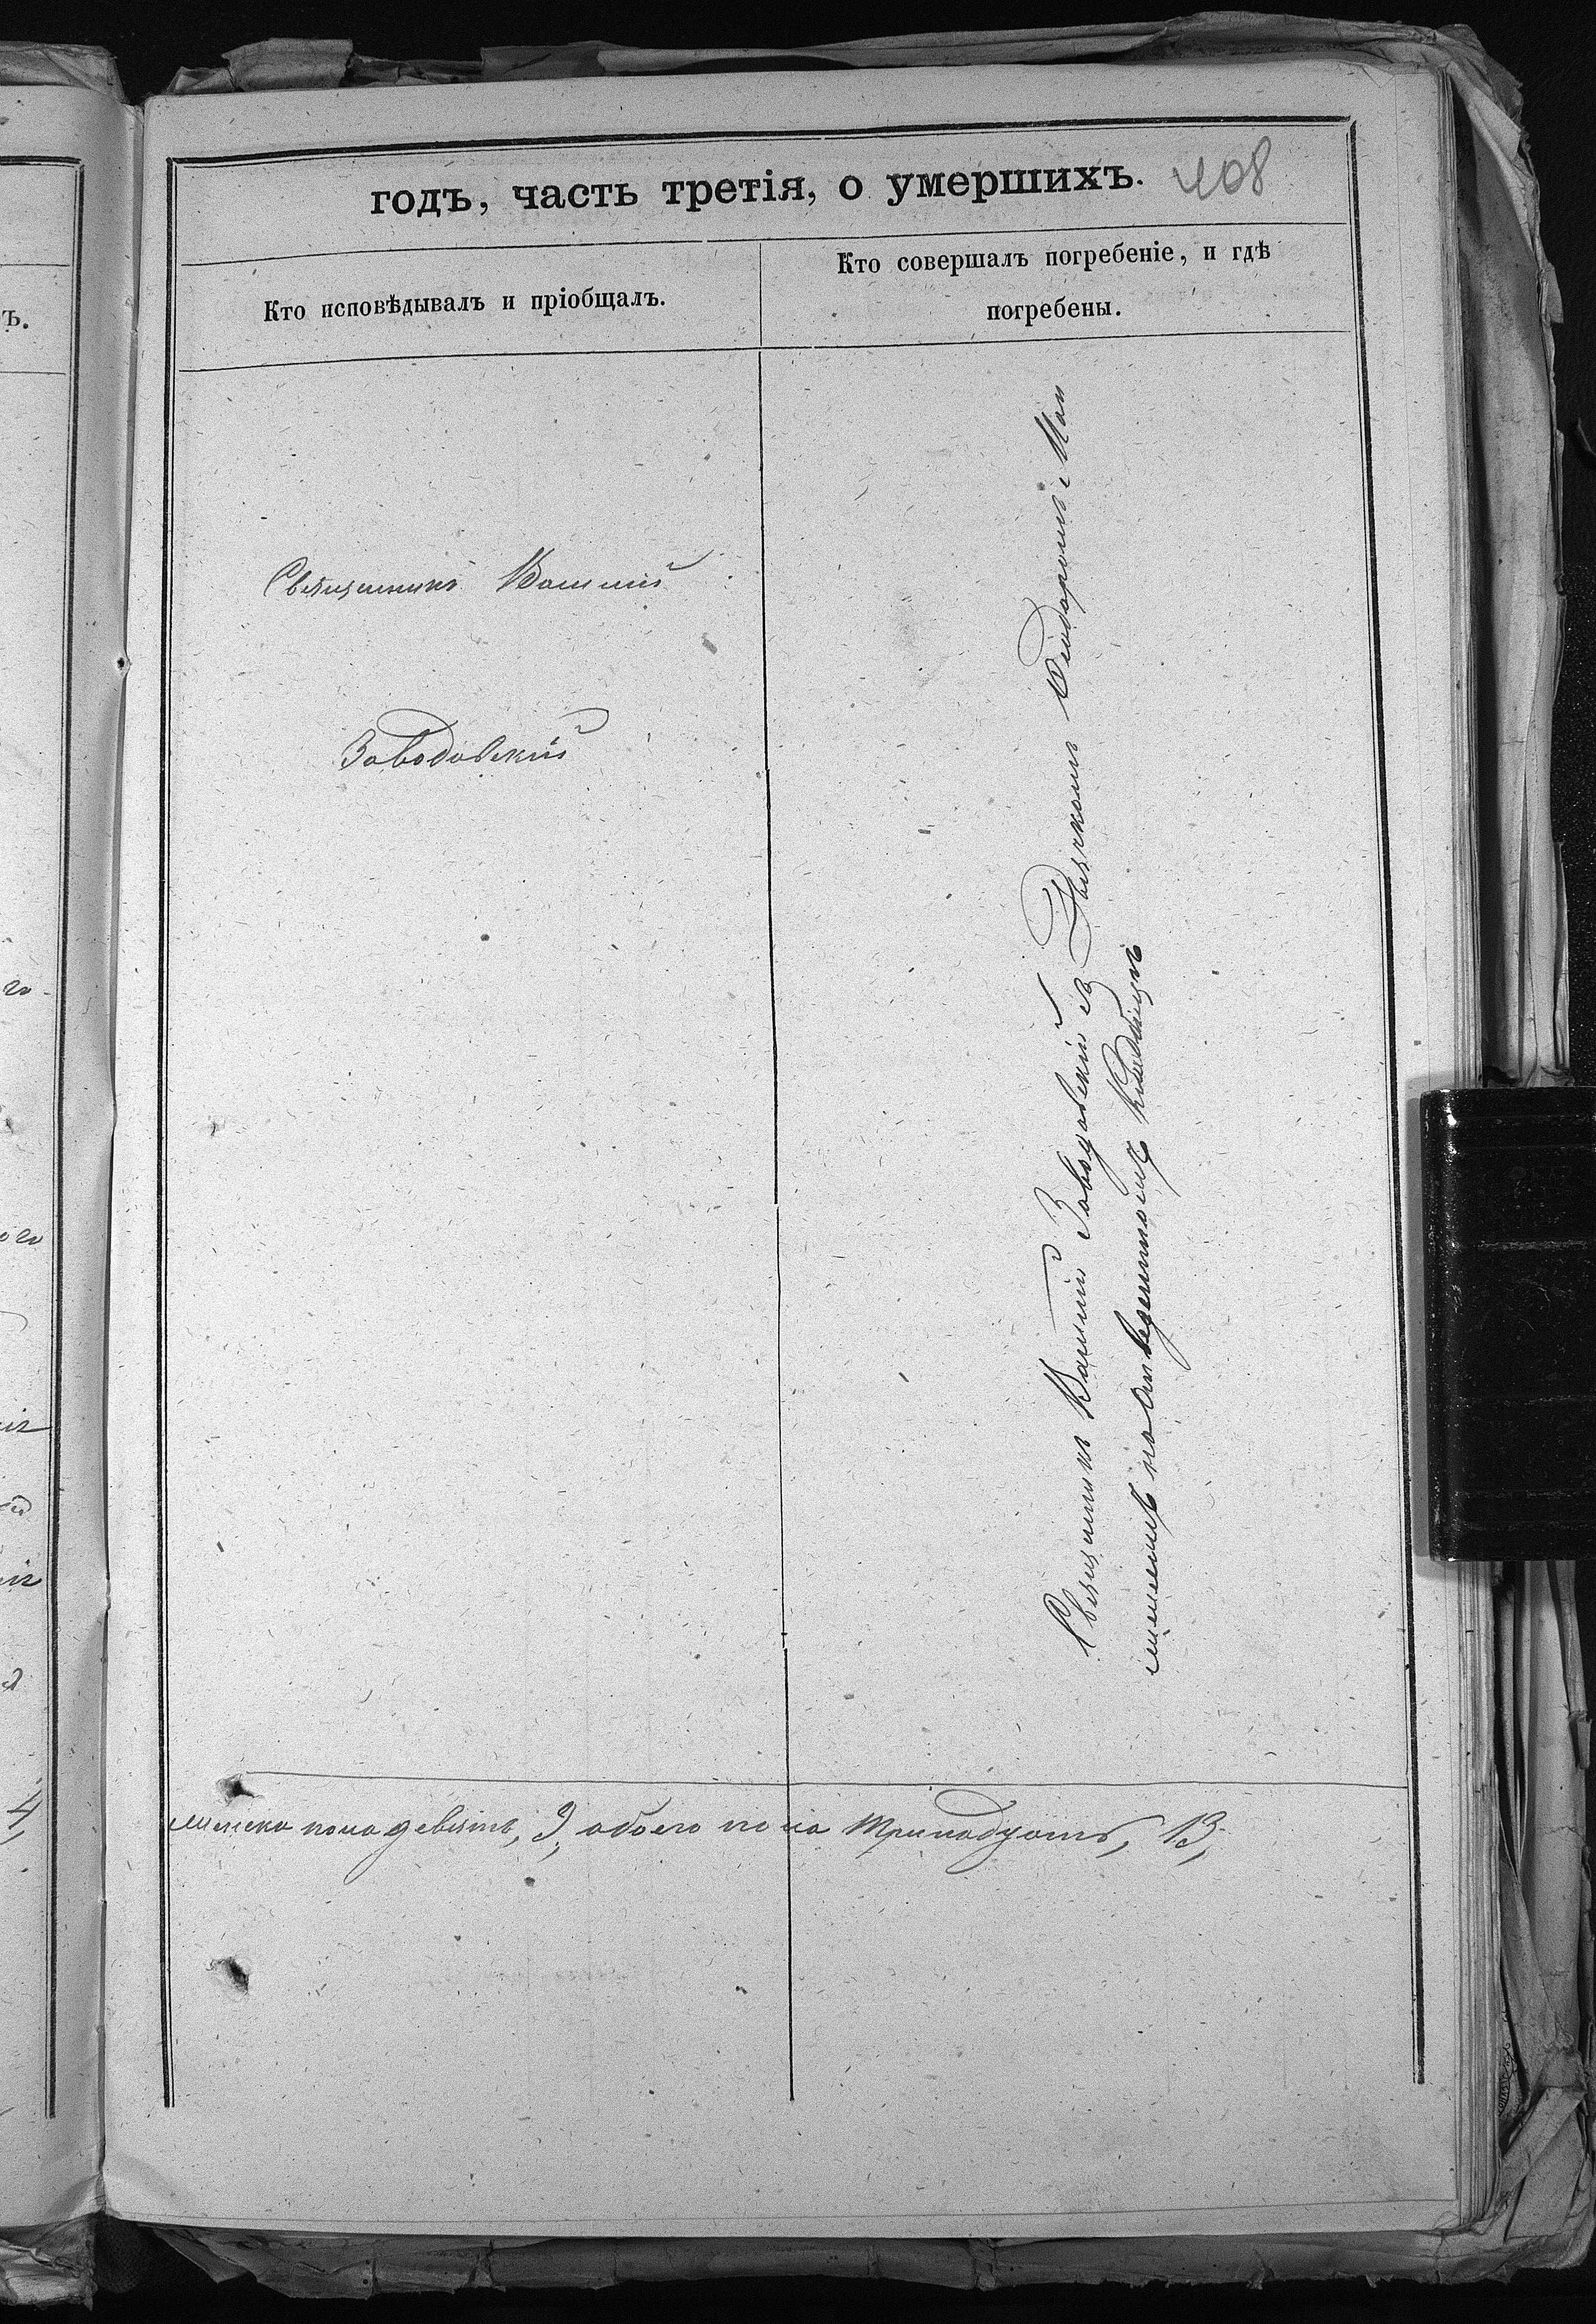 годъ, часть третія, о умершихъ. 408
Кто исповѣдывалъ и пріобщалъ.
Кто совершалъ погребеніе, и гдѣ
погребены.
Священникъ
Заводовскій
Священникъ Заводовскій съ Дьячкомъ Ѳеодоромъ
на отведенномъ кладбищѣ
женска пола девять, 9, обоего пола тринадцать, 13,
ъ.
го
4,